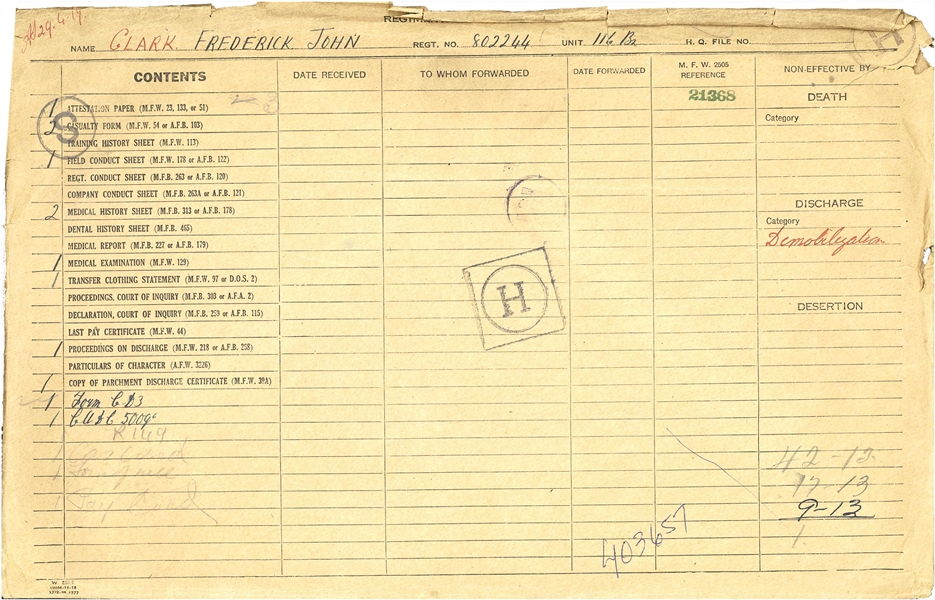 29.4.19.
NAME CLARK. FREDERICK JOHN REGT. NO. 802244 UNIT. 116 Bn H. Q. FILE NO.
CONTENTS DATE RECEIVED TO WHOM FORWARDED DATE FORWARDED M. F. W. 2505 REFERENCE NON-EFFECTIVE BY
21368 DEATH
1 ATTESTATION PAPER (M.F.W. 23, 133, or 51)
Category
2 CASUALTY FORM (M.F.W. 54 or A.F.B. 103)
S
TRAINING HISTORY SHEET (M.F.W. 113)
1 FIELD CONDUCT SHEET (M.F.W. 178 or A.F.B. 122)
REGT. CONDUCT SHEET (M.F.B. 263 or A.F.B. 120)
COMPANY CONDUCT SHEET (M.F.B. 263A or A.F.B. 121)
DISCHARGE
2 MEDICAL HISTORY SHEET (M.F.B. 313 or A.F.B. 178)
Category
DENTAL HISTORY SHEET (M.F.B. 465)
Demobilization
MEDICAL REPORT (M.F.B. 227 or A.F.B. 179)
1 MEDICAL EXAMINATION (M.F.W. 129)
1 TRANSFER CLOTHING STATEMENT (M.F.W. 97 or D.O.S. 2)
PROCEEDINGS, COURT OF INQUIRY (M.F.B. 303 or A.F.A. 2)
H
DESERTION
DECLARATION, COURT OF INQUIRY (M.F.B. 259 or A.F.B. 115)
LAST PAY CERTIFICATE (M.F.W. 44)
1 PROCEEDINGS ON DISCHARGE (M.F.W. 218 or A.F.B. 268)
PARTICULARS OF CHARACTER (A.F.W. 3226)
1 COPY OF PARCHMENT DISCHARGE CERTIFICATE (M.F.W. 39A)
1 Form C D3
1 5009
R 149
42-12
17-13
9-13
1
403657
H